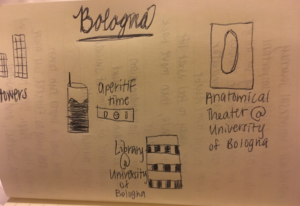 Bologna
towers
aperitif
time
Anatomical
Theater @
University
of Bologna
Library
@
University
of Bologna